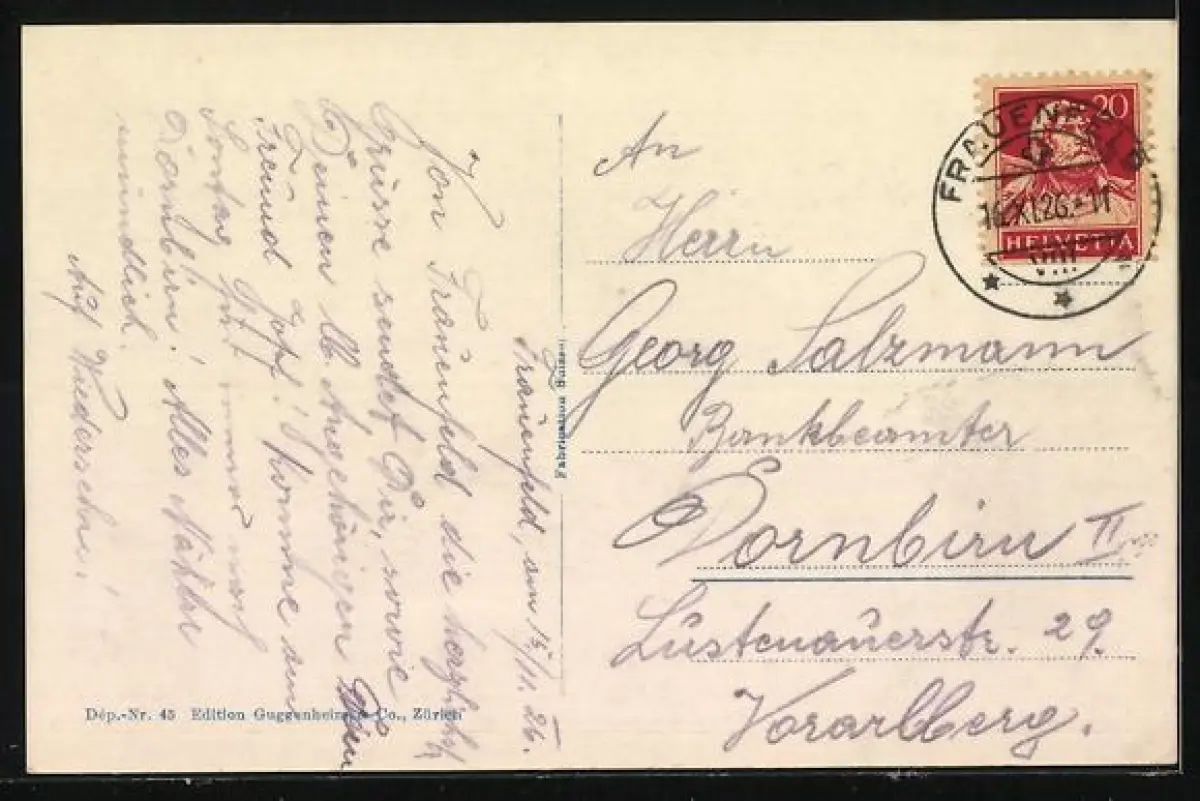 Frauenfeld, am 15/11. 26.
Von Frauenfeld die herzlichst
Grüsse sendet Dir, sowie
Deinen lb Angehörigen Dein
Freund Komme am
Sontag für immer nach
Dornbirn! Alles Nähere
mündlich.
Auf Wiedersehn!
Dép.-Nr. 45 Edition Guggenheim & Co., Zürich
Fabrication Suisse
An
Herrn
Georg Salzmann
Bankbeamter
Dornbirn II
Lüstenauerstr. 29.
Vorarlberg.
20
HELVETIA
FRAUENFELD
16.XI.26.-11